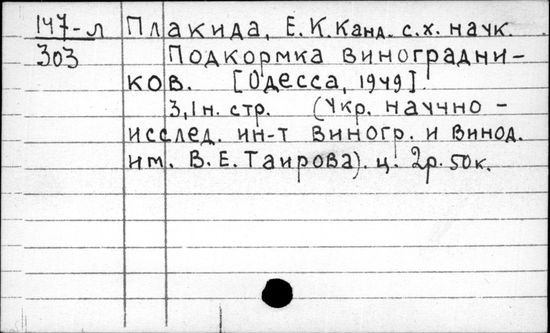 147-л Плакида, Е.К. Канд. с.х. наук.
303 Подкормка виноградни-
ков. [Одесса, 1949].
3,1 н. стр. (Укр. научно-
исслед. ин-т виногр. и винод.
им. В.Е. Таирова). ц. 2р. 50к.